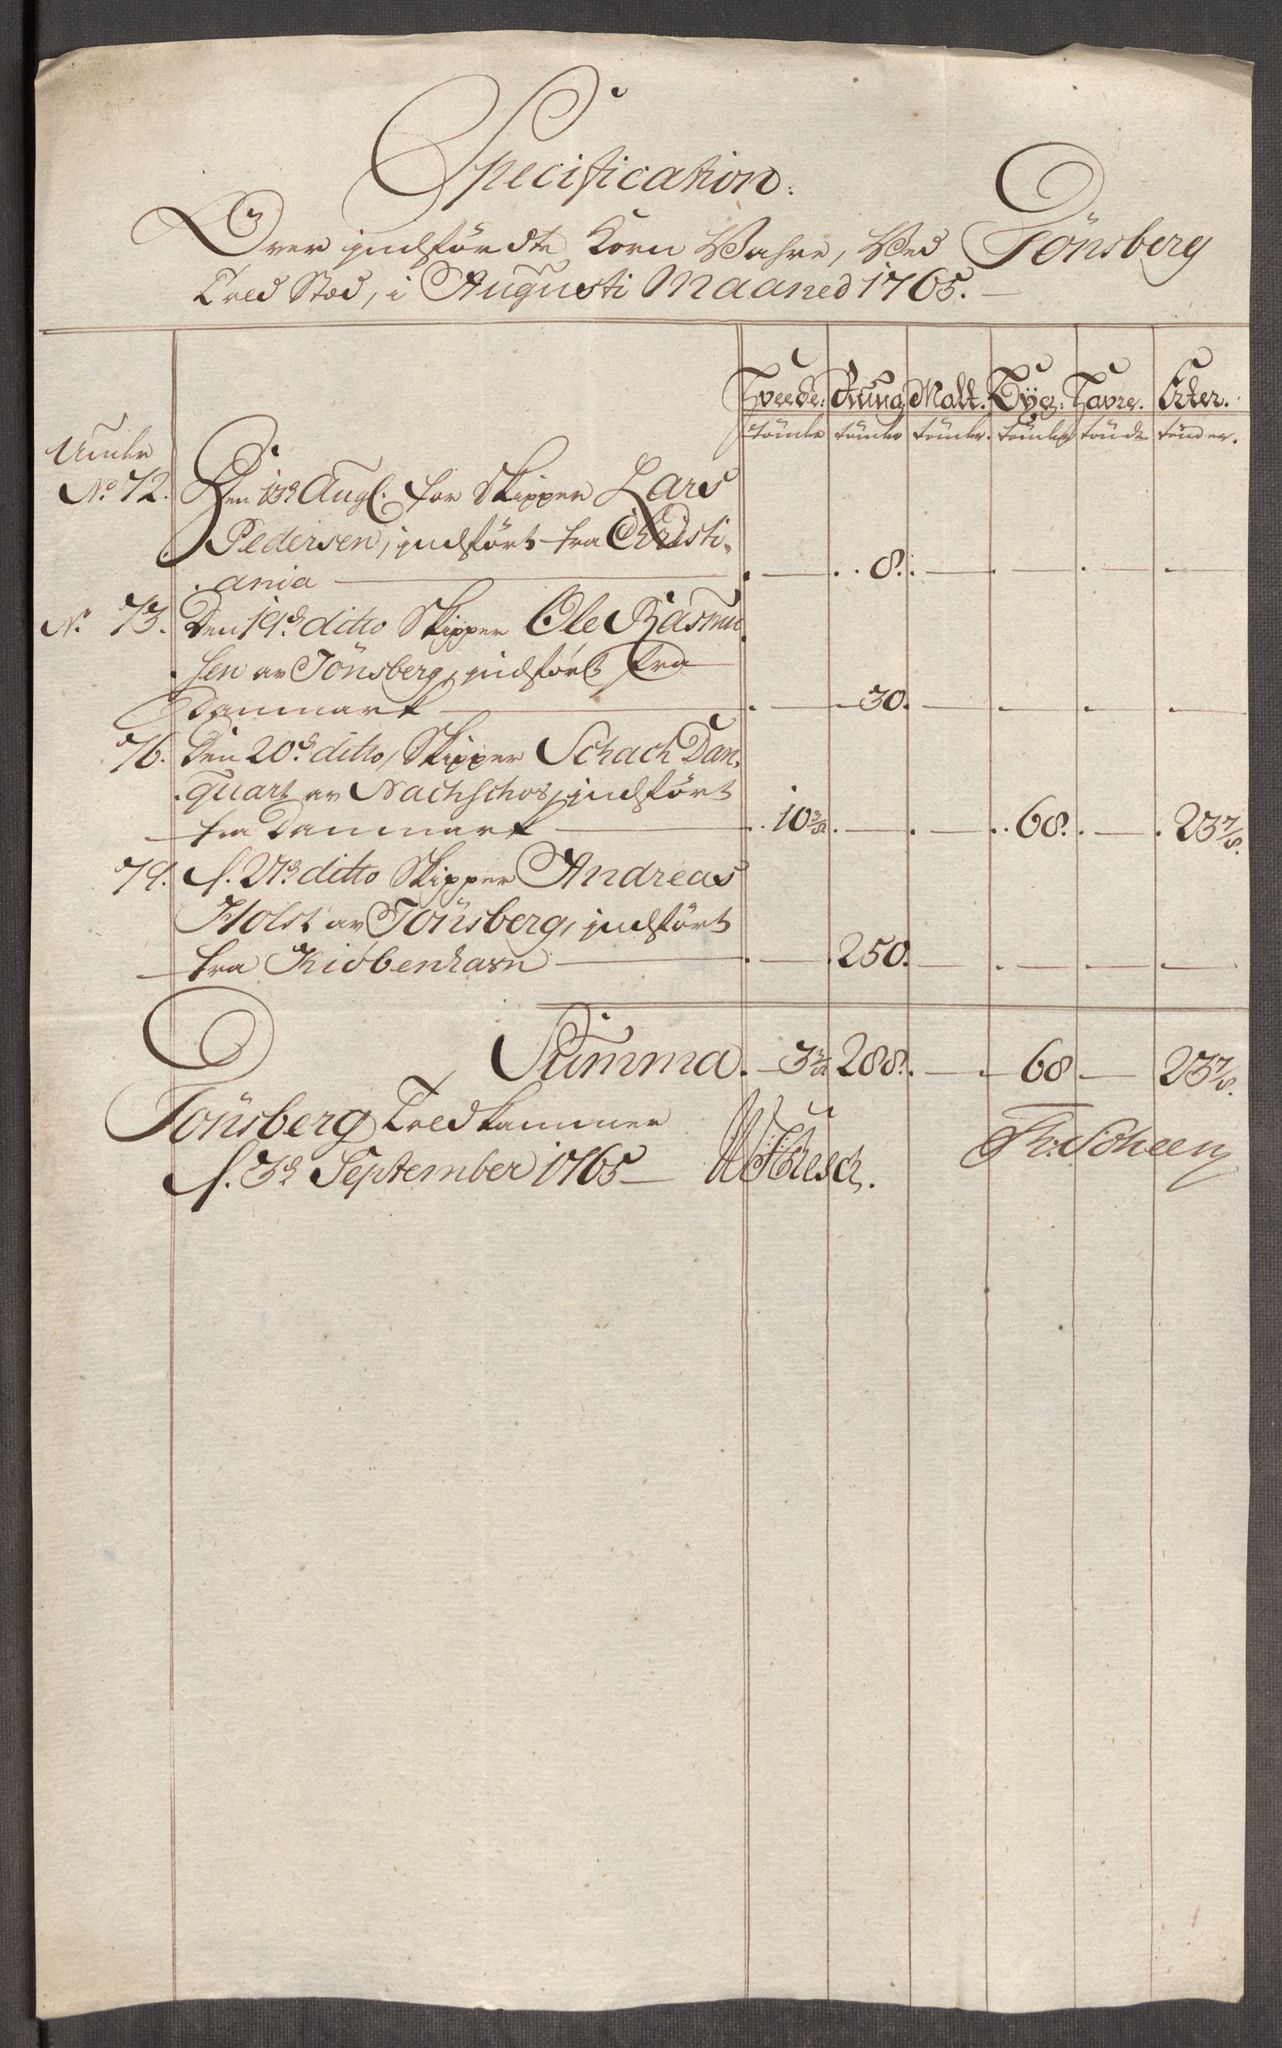 Specification.
Over indfördte Korn Wahre, Ved Tönsberg
Told Stæd, i Augusti Maaned 1765.
Hvede. Rug Malt. Byg. Havre. Erter.
tönder tönder tönder. tönder tönde tönder.
No 72. Den 13de Aug. har Skipper Lars
Pedersen, indfört fra Christi-
ania 8.
No. 73. Den 19de ditto Skipper Ole Rasmu
sen av Tönsberg, indfört fra
Danmark 30.
76. Den 20de ditto, Skipper Schach Dan-
quart av Nachschov, indfört
fra Danmark 10 3/8 68. 23 7/8.
79. d. 27de ditto Skipper Andreas
Holst av Tönsberg, indfört
fra Kiöbenhavn 250.
Summa. 288. 68 23 7/8.
Tönsberg Told Kammer
d. 3de September 1765